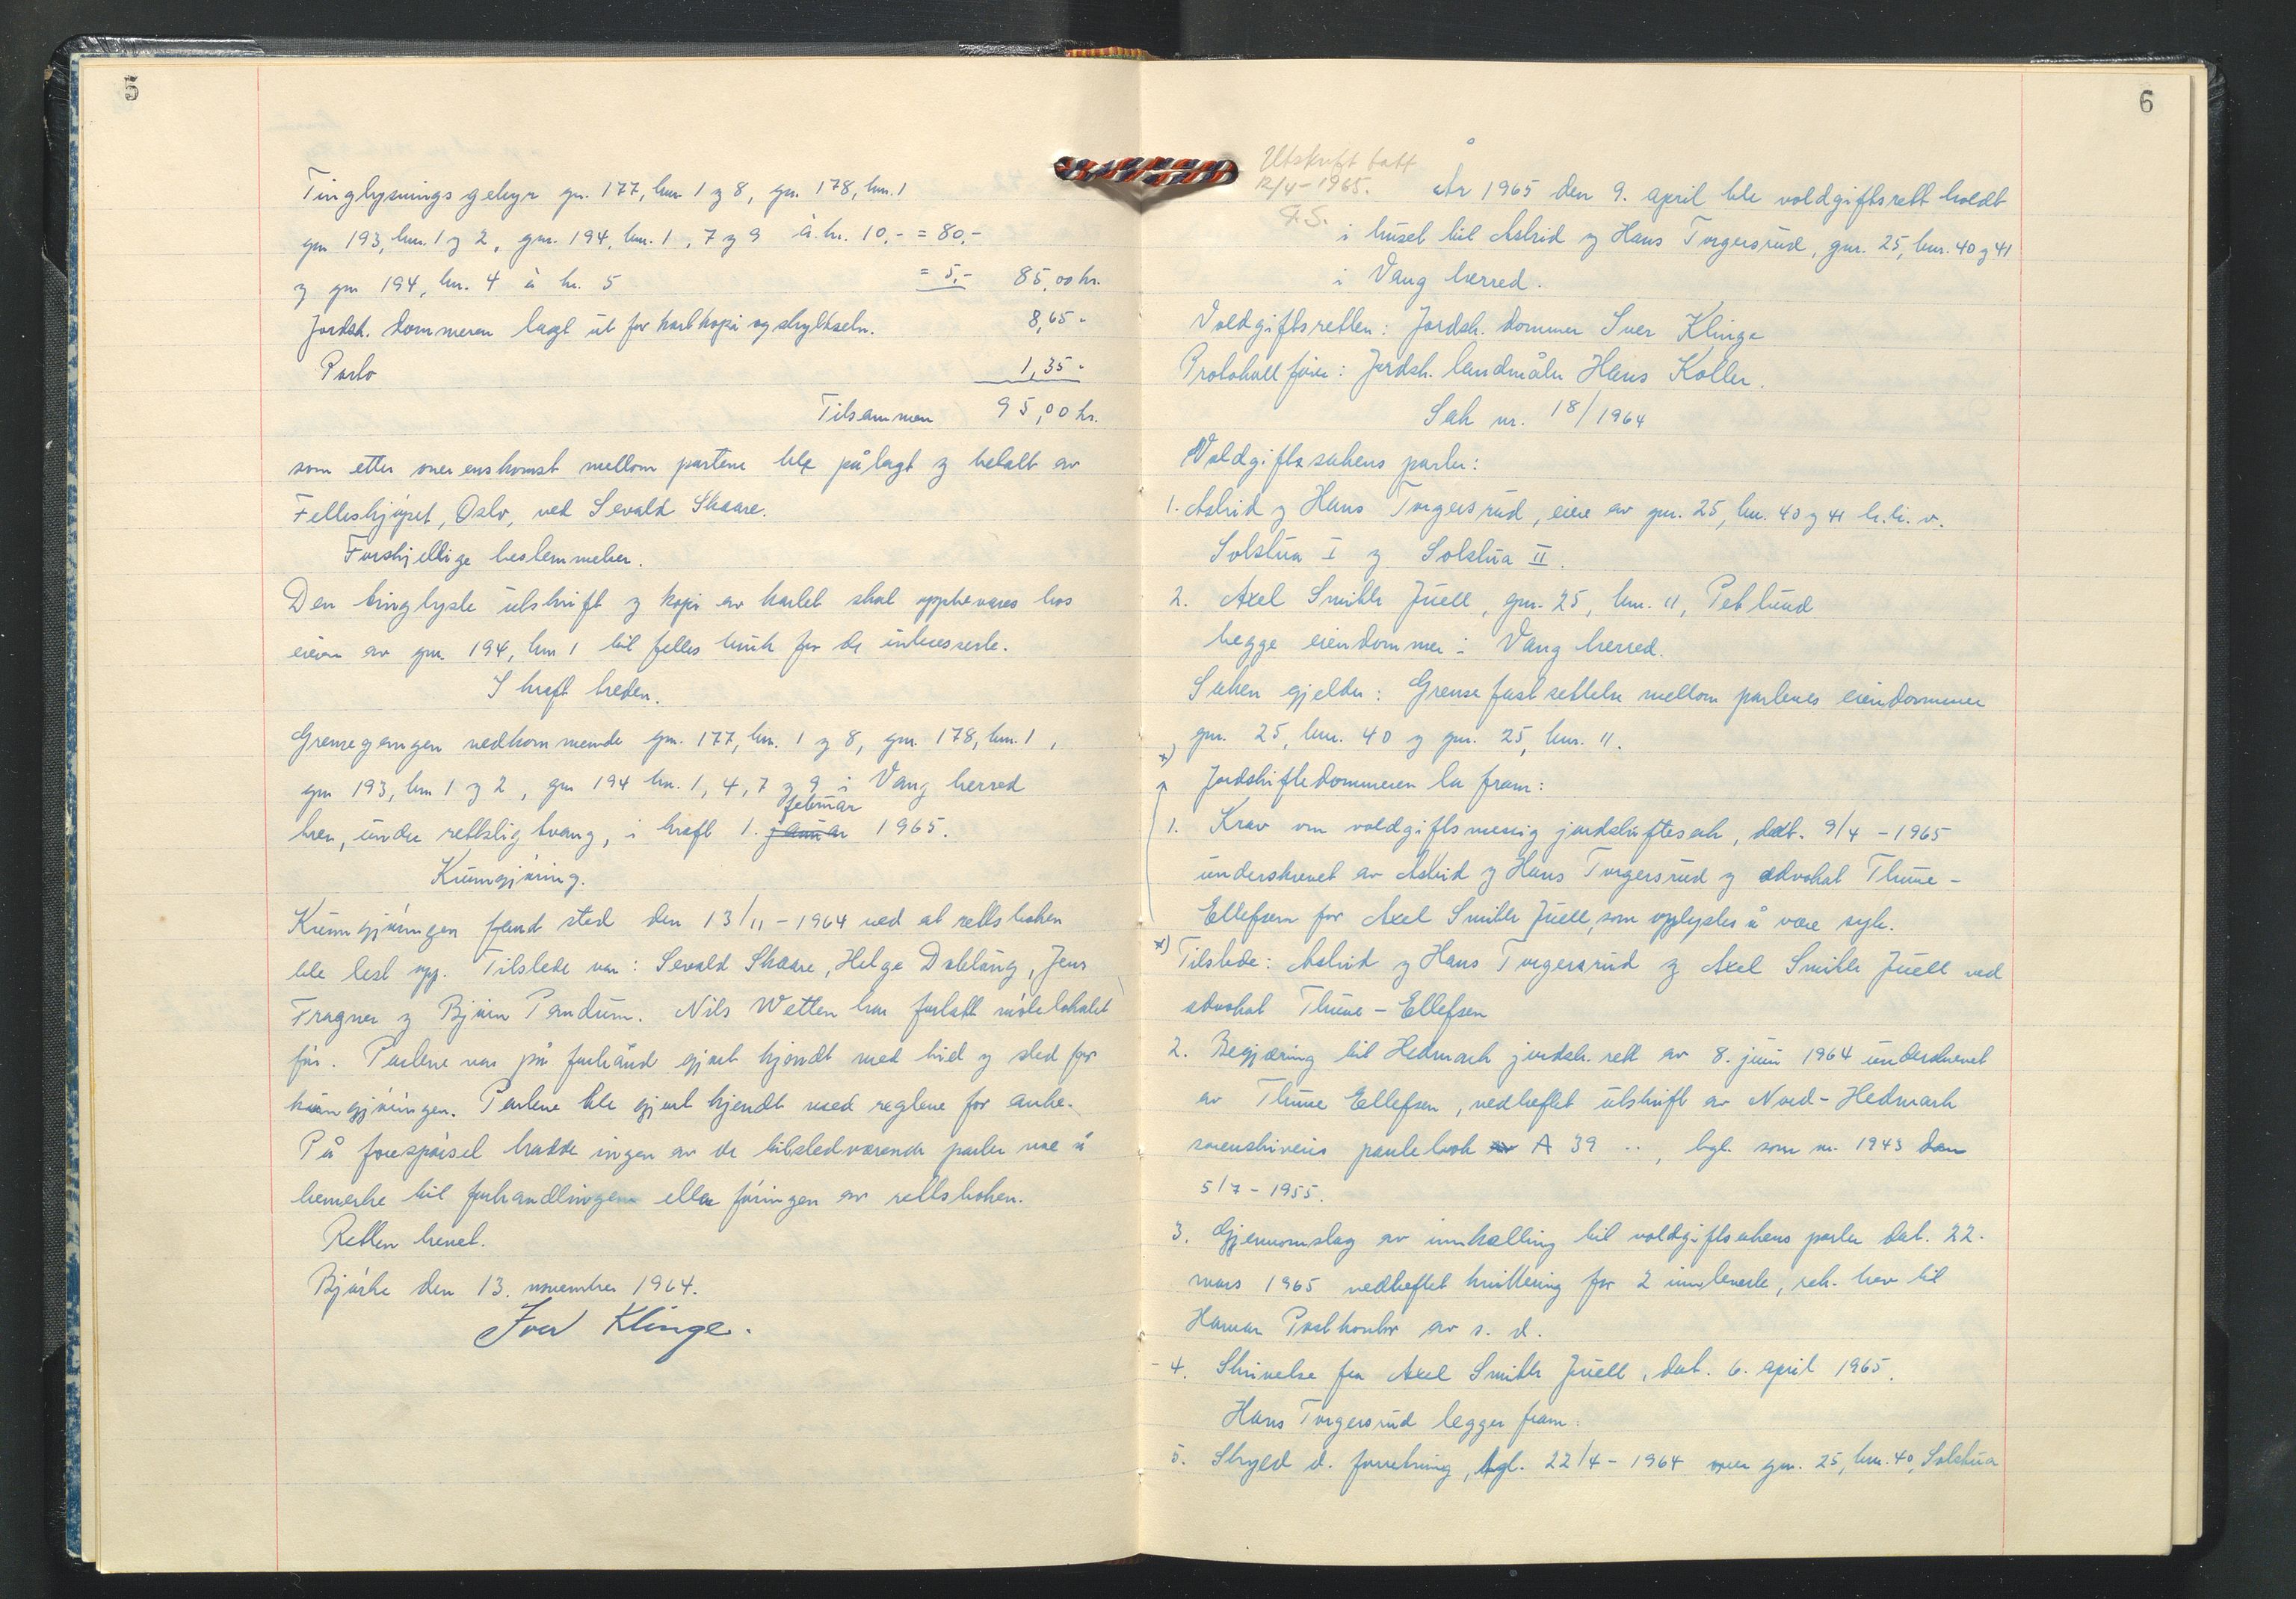 5
Tinglysningsgebyr gnr. 177, bnr. 1 og 8, gnr. 178, bnr. 1
gnr 193, bnr. 1 og 2, gnr. 194, bnr. 1, 7 og 9 à kr. 10,- = 80,-
og gnr 194, bnr. 4 à kr. 5 = 5,- 85,00 kr.
Jordsk. dommeren lagt ut for kartkopi og skyldseln. 8,65 "
Porto 1,35 "
Tilsammen 95,00 kr.
som etter overenskomst mellom partene ble pålagt og betalt av
Felleskjøpet, Oslo, ved Sevald Skaare.
Forskjellige bestemmelser.
Den tinglyste utskrift og kopi av kartet skal oppbevares hos
eieren av gnr. 194, bnr 1 til felles bruk for de interesserte.
I kraft treden.
Grensegangen vedkommende gnr. 177, bnr. 1 og 8, gnr. 178, bnr. 1,
gnr 193, bnr 1 og 2, gnr 194 bnr. 1, 4, 7 og 9 i Vang herred
februar
trer, under rettslig tvang, i kraft 1. januar 1965.
Kunngjøring.
Kunngjøringen fandt sted den 13/11 - 1964 ved at rettsboken
ble lest opp. Tilstede var: Sevald Skaare, Helge Dobloug, Jens
Fragner og Bjørn Pandum. Nils Wetten har forlatt møtelokalet
før. Partene var på forhånd gjort kjendt med tid og sted for
kunngjøringen. Partene ble gjort kjendt med reglene for anke.
På forespørsel hadde ingen av de tilstedværende parter noe å
bemerke til forhandlingene eller føringen av rettsboken.
Retten hevet.
Bjørke den 13. november 1964.
Iver Klinge.
6
Utskrift tatt
12/4-1965.
År 1965 den 9. april ble voldgiftsrett holdt
i huset til Astrid og Hans Torgersrud, gnr. 25, bnr. 40 og 41
i Vang herred.
Voldgiftsretten: Jordsk. dommer Iver Klinge
Protokollfører: Jordsk. landmåler Hans Koller.
Sak nr. 18/1964
Voldgiftssakens parter:
1. Astrid og Hans Torgersrud, eiere av gnr. 25, bnr. 40 og 41 h.h.v.
Solstua I og Solstua II.
2. Axel Smith Juell, gnr. 25, bnr. 11, Peblund
begge eiendommer i Vang herred.
Saken gjelder: Grensefastsettelse mellom partenes eiendommer
gnr. 25, bnr. 40 og gnr. 25, bnr. 11.
x)
Jordskiftedommeren la fram:
1. Krav om voldgiftsmessig jordskiftesak, dat. 9/4 - 1965
underskrevet av Astrid og Hans Torgersrud og advokat Thune-
Ellefsen for Axel Smith Juell, som opplystes å være syk.
x) Tilstede: Astrid og Hans Torgersrud og Axel Smith Juell ved
advokat Thune - Ellefsen
2. Begjæring til Hedmark jordsk. rett av 8. juni 1964 underskrevet
av Thune Ellefsen, vedheftet utskrift av Nord-Hedmark
sorenskriveris pantebok av A 39 .., tgl. som nr. 1943 den
5/7 - 1955.
3. Gjennomslag av innkalling til voldgiftsakens parter dat. 22.
mars 1965 vedheftet kvittering for 2 innleverte, rek. brev til
Hamar Postkontor av s. d.
4. Skrivelse fra Axel Smith Juell, dat. 6. april 1965.
Hans Torgersrud legger fram:
5. Skyld d. forretning, tgl. 22/4 - 1964 over gnr. 25, bnr. 40, Solstua